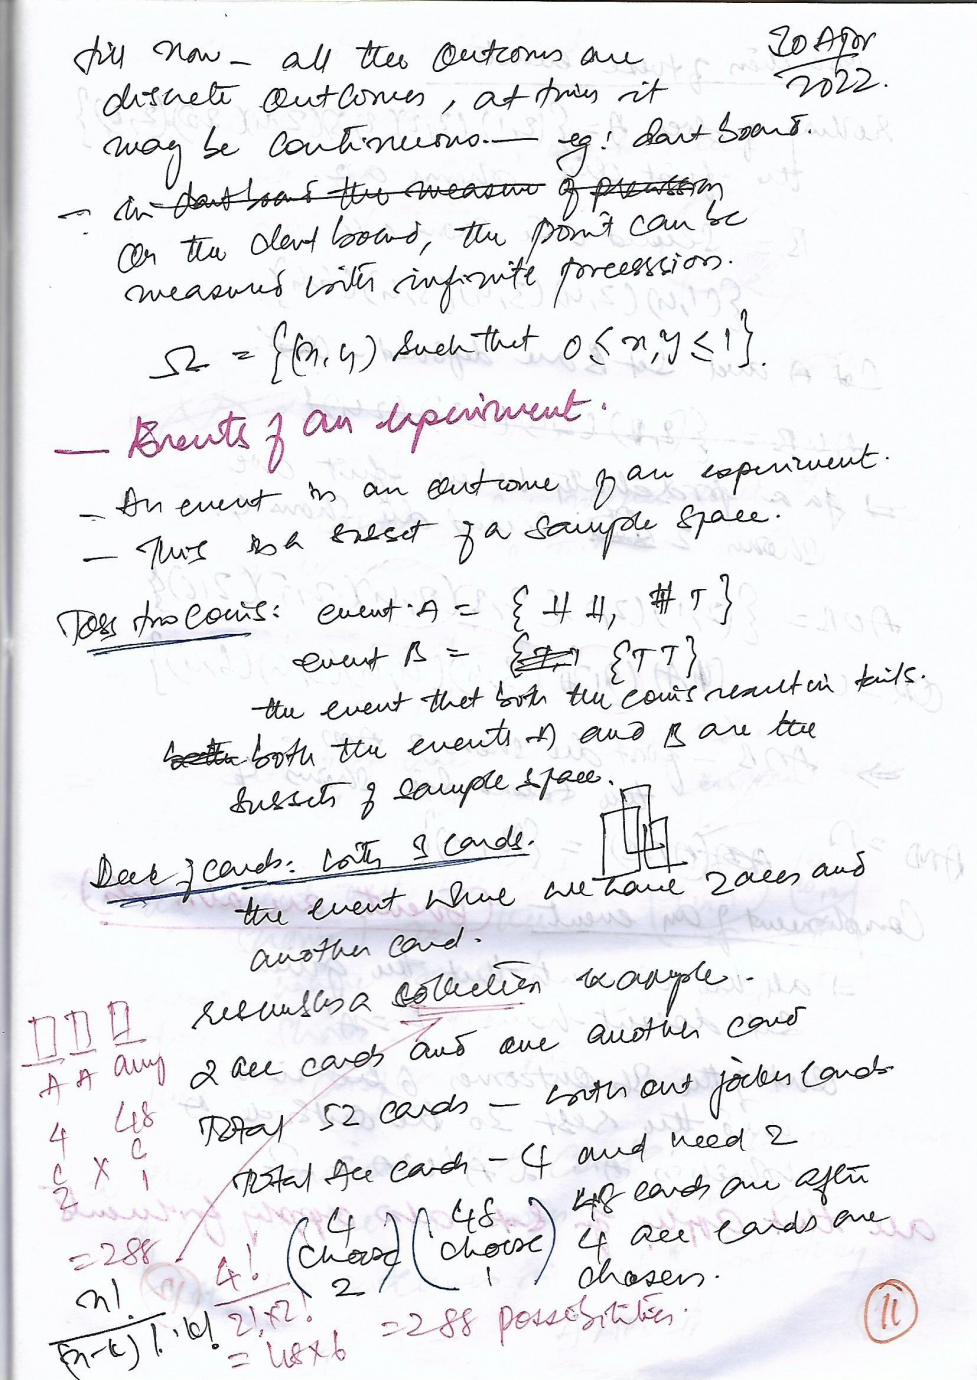 till now - all the outcoms are
30 Apr
2022.
discrete outcomes, at times it
may be continuous. — eg: dart board.
- in dart board the measure of precission
On the dart board, the point can be
measured with infinite precession.
Ω = {(x,y) such that 0 ≤ x,y ≤ 1}.
— Events of an experiment.
- An event is an outcome of an experiment.
- This is a subset of a sample space.
Toss two coins: event A = { H H, H T }
event B = {T T}
the event that both the coins result in tails.
both the events A and B are the
subsets of sample space.
Deck of cards: with 3 cards.
the event where we have 2 aces and
another card.
a collection example.
2 ace cards and one another card
A A any
Total 52 cards - with out jocker cards
Total Ace cards - 4 and need 2
4 48
C × C
2 1
= 288
(4 choose 2) (48 choose 1)
48 cards are after
4 ace cards are
chosen.
n! / (n-k)! . k!
4! / 2! x 2!
= 288 possibilities.
= 48 x 6
11